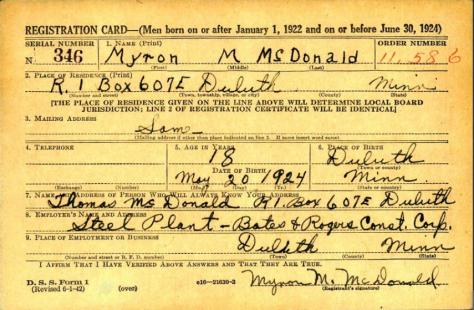 REGISTRATION CARD—(Men born on or after January 1, 1922 and on or before June 30, 1924)
SERIAL NUMBER 1. NAME (Print) ORDER NUMBER
N 346 Myron M McDonald 11,586
(First) (Middle) (Last)
2. PLACE OF RESIDENCE (Print)
R. 1 Box 607E Duluth Minn
(Number and street) (Town, township, village, or city) (County) (State)
[THE PLACE OF RESIDENCE GIVEN ON THE LINE ABOVE WILL DETERMINE LOCAL BOARD
JURISDICTION; LINE 2 OF REGISTRATION CERTIFICATE WILL BE IDENTICAL]
3. MAILING ADDRESS
Same
[Mailing address if other than place indicated on line 2. If same insert word same]
4. TELEPHONE 5. AGE IN YEARS 6. PLACE OF BIRTH
18 Duluth
DATE OF BIRTH (Town or county)
May 20 1924 Minn.
(Exchange) (Number) (Mo.) (Day) (Yr.) (State or country)
7. NAME AND ADDRESS OF PERSON WHO WILL ALWAYS KNOW YOUR ADDRESS
Thomas McDonald R1. Box 607E Duluth
8. EMPLOYER'S NAME AND ADDRESS
Steel Plant - Bates & Rogers Const. Corp.
9. PLACE OF EMPLOYMENT OR BUSINESS
Duluth Minn
(Number and street or R. F. D. number) (Town) (County) (State)
I AFFIRM THAT I HAVE VERIFIED ABOVE ANSWERS AND THAT THEY ARE TRUE.
D. S. S. Form 1
(Revised 6-1-42) (over) c16—21630-2 Myron M. McDonald
(Registrant's signature)